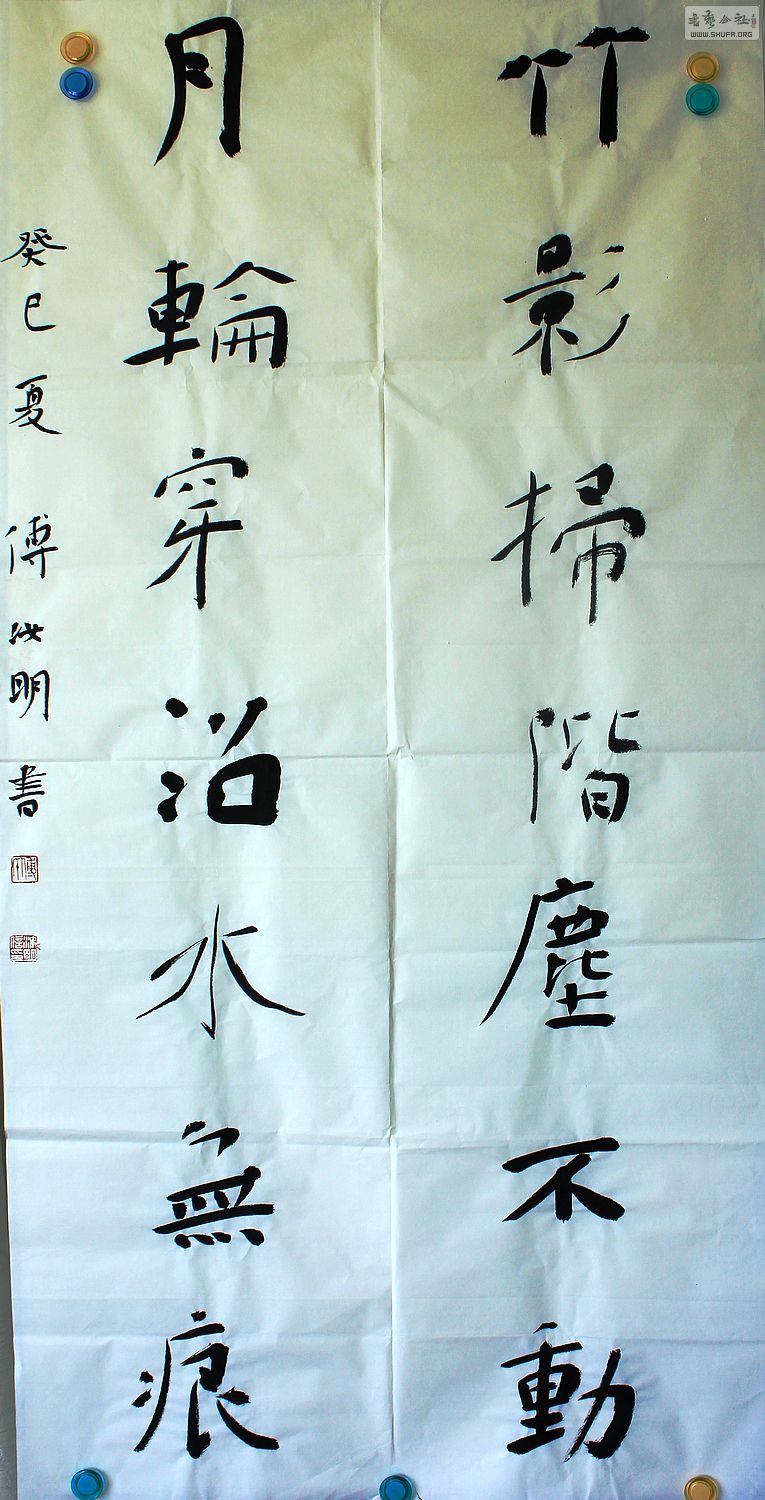 竹影掃階塵不動
月輪穿沼水無痕
癸巳夏 傅汝明書
書藝公社
WWW.SHUFA.ORG